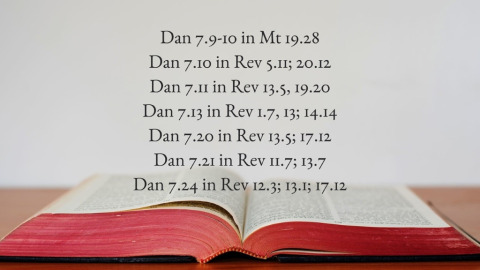 Dan 7.9-10 in Mt 19.28
Dan 7.10 in Rev 5.11; 20.12
Dan 7.11 in Rev 13.5, 19.20
Dan 7.13 in Rev 1.7, 13; 14.14
Dan 7.20 in Rev 13.5; 17.12
Dan 7.21 in Rev 11.7; 13.7
Dan 7.24 in Rev 12.3; 13.1; 17.12